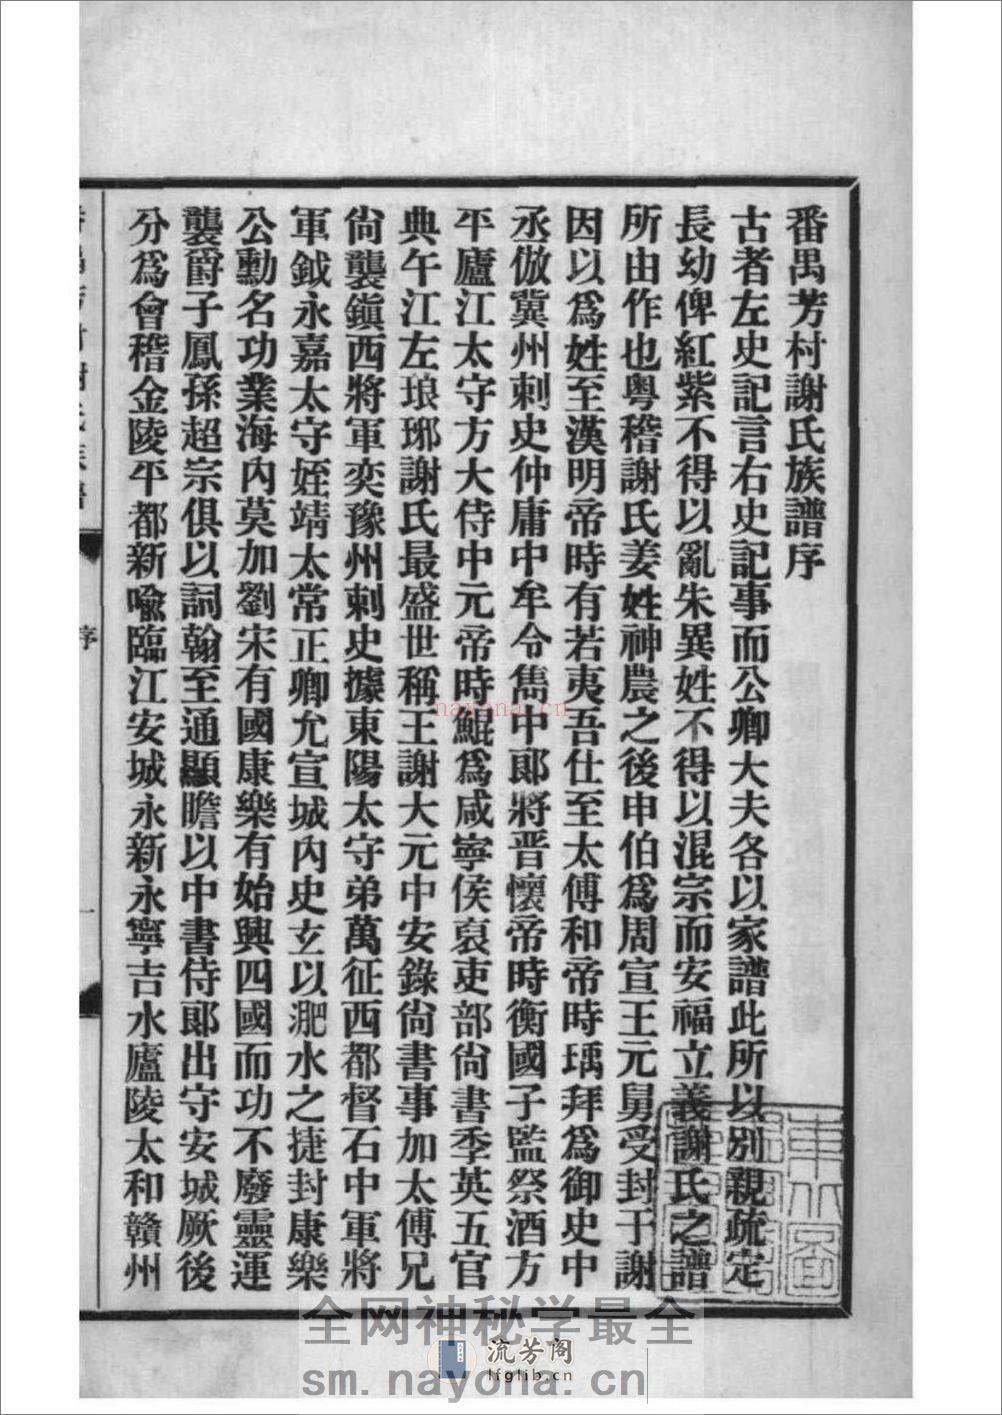 番禺芳村謝氏族譜序
古者左史記言右史記事而公卿大夫各以家譜此所以別親疏定
長幼俾紅紫不得以亂朱異姓不得以混宗而安福立義謝氏之譜
所由作也粵稽謝氏姜姓神農之後申伯爲周宣王元舅受封于謝
因以爲姓至漢明帝時有若夷吾仕至太傅和帝時瑀拜爲御史中
丞倣冀州刺史仲庸中牟令雋中郎將晋懷帝時衡國子監祭酒方
平廬江太守方大侍中元帝時鯤爲咸寧侯裒吏部尙書季英五官
典午江左琅琊謝氏最盛世稱王謝大元中安錄尙書事加太傅兄
尙襲鎭西將軍奕豫州刺史據東陽太守弟萬征西都督石中軍將
軍鉞永嘉太守姪靖太常正卿允宣城內史玄以淝水之捷封康樂
公勳名功業海內莫加劉宋有國康樂有始興四國而功不廢靈運
襲爵子鳳孫超宗俱以詞翰至通顯瞻以中書侍郎出守安城厥後
分爲會稽金陵平都新喩臨江安城永新永寧吉水廬陵太和贛州
序
一
nayona.cn
全网神秘学最全
流芳阁
lfglib.cn
sm.nayona.cn